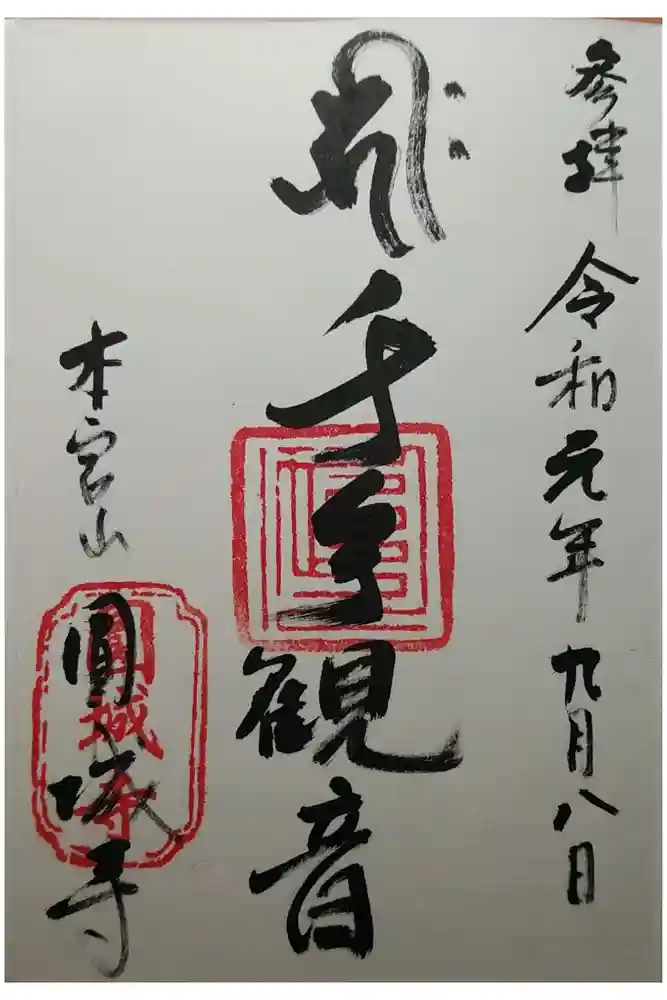 参拝 令和元年九月八日
千手観音
本宮山
圓城寺
圓城寺